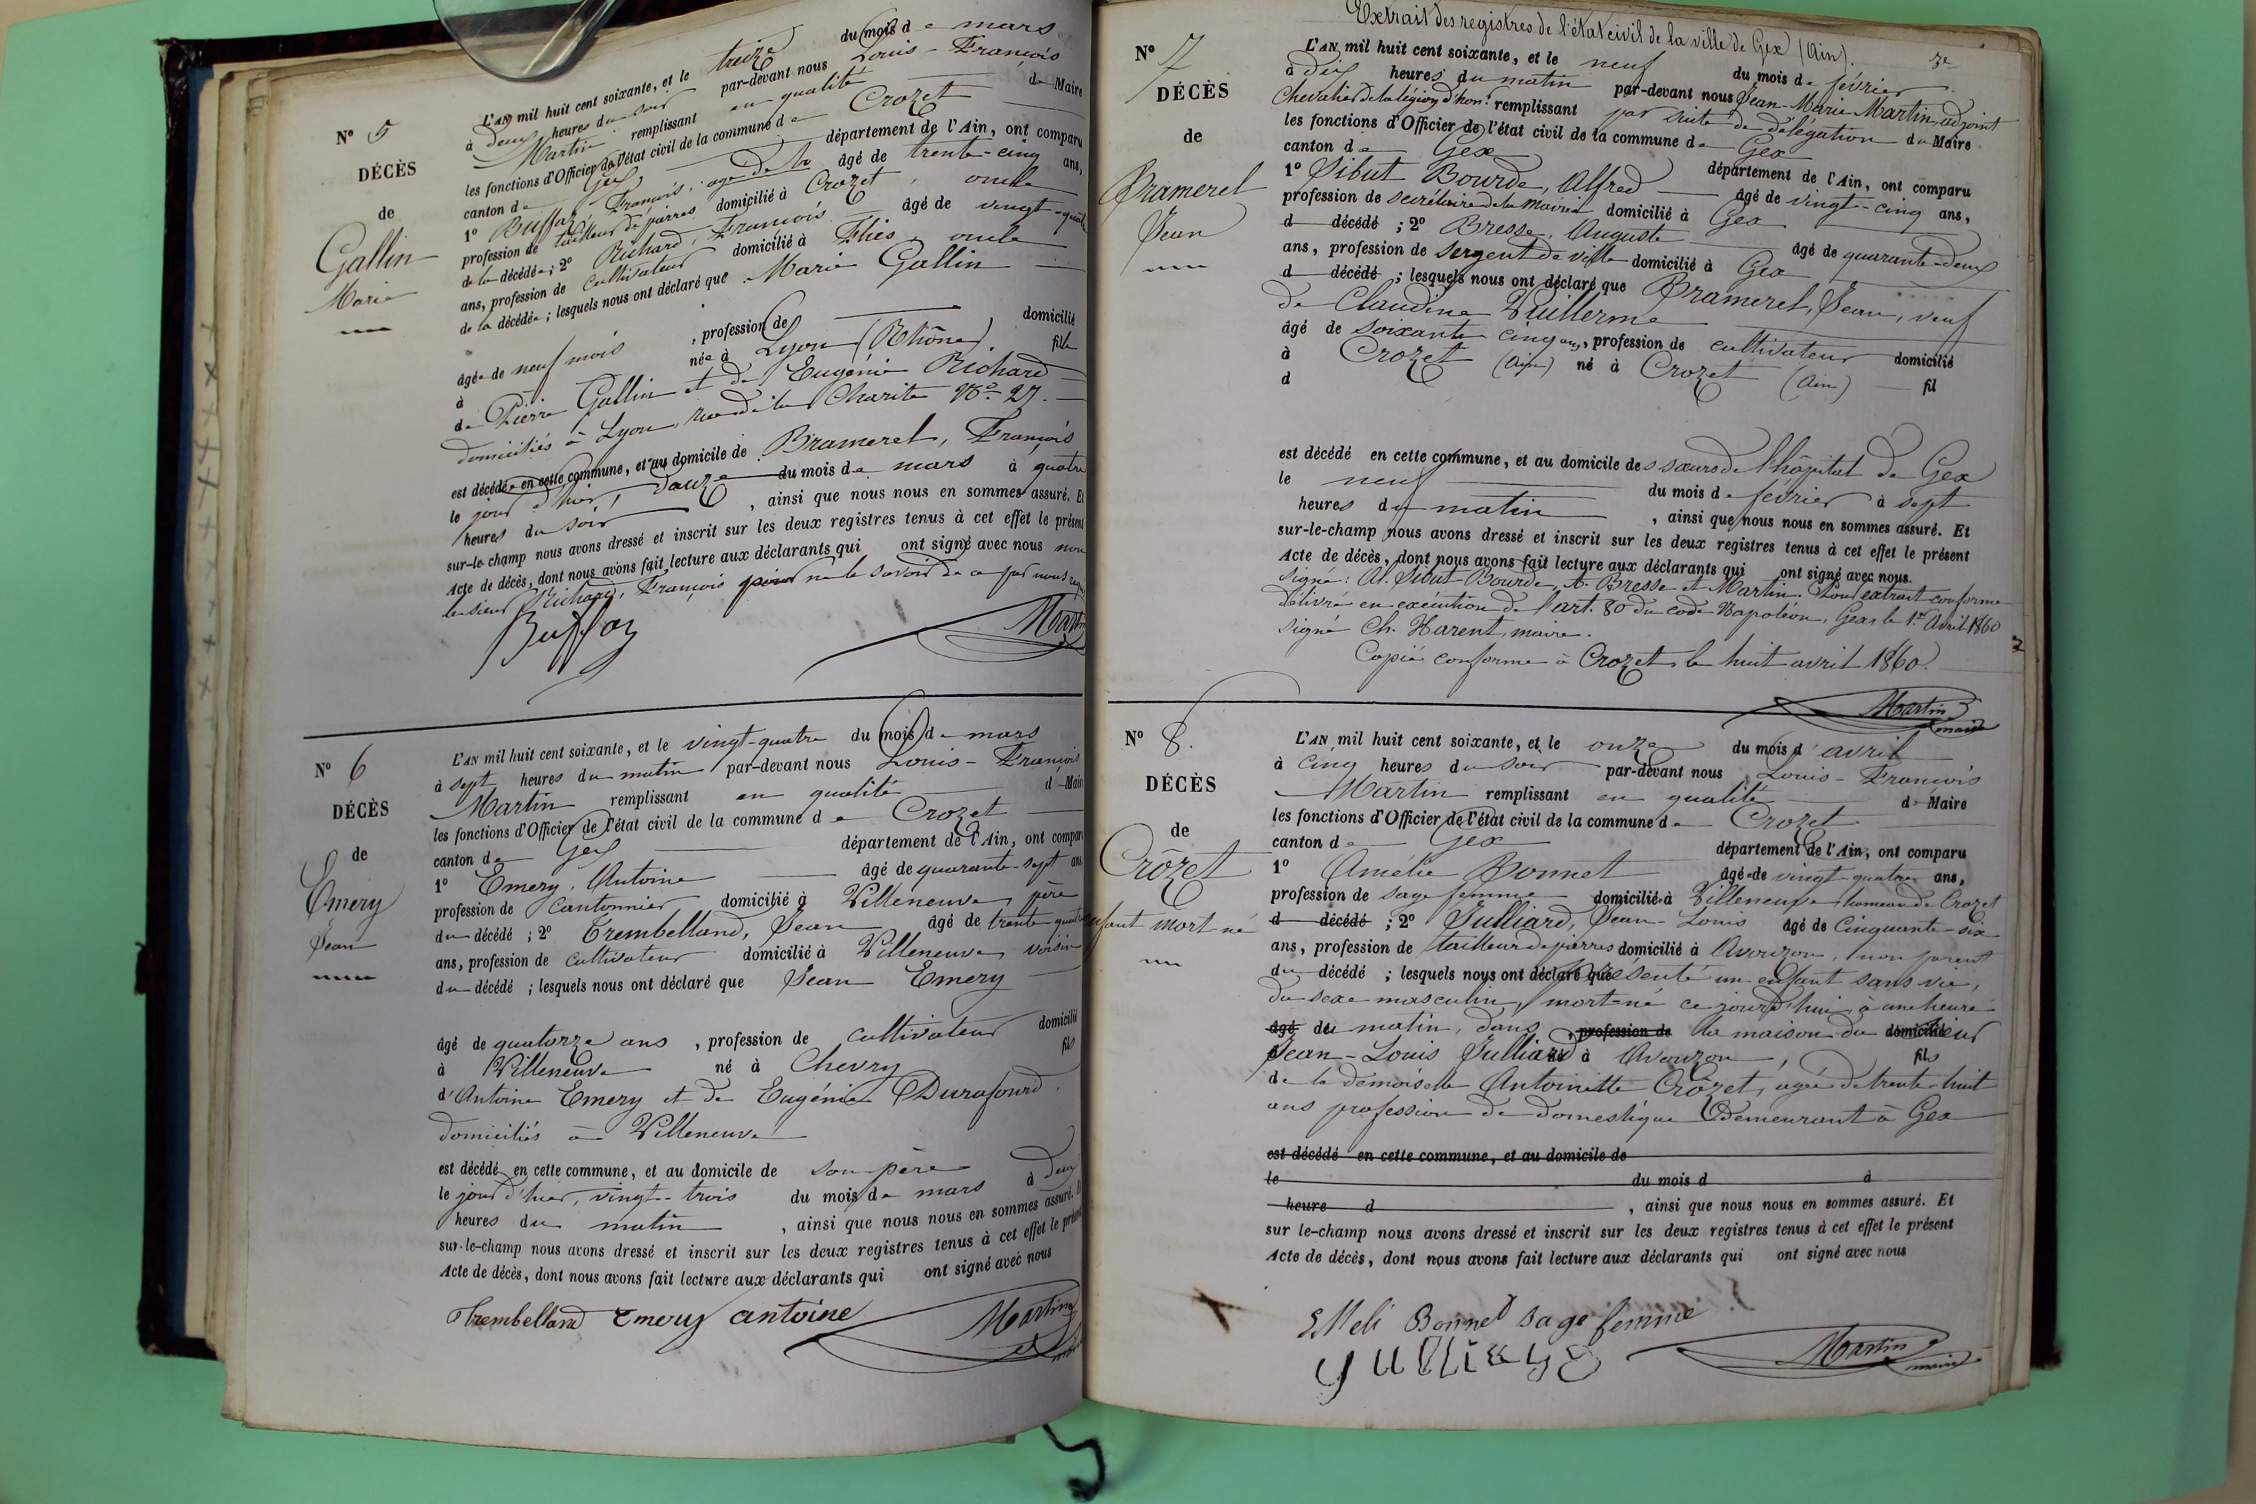 N° 5
DÉCÈS
de
Gallin
Marie
L'AN mil huit cent soixante, et le treize du mois de mars
à deux heures du soir par-devant nous Louis-François
Martin remplissant en qualité de Maire
les fonctions d'Officier de l'état civil de la commune de Crozet
canton de Gex département de l'Ain, ont comparu
1° Buffaz, François, âgé de trente-cinq ans,
profession de tailleur de pierres domicilié à Crozet, oncle
de la décédée; 2° Richard, François âgé de vingt-quatre
ans, profession de cultivateur domicilié à Thies, oncle
de la décédée; lesquels nous ont déclaré que Marie Gallin
âgée de neuf mois, profession de domicilié
à née à Lyon (Rhône) fille
de Pierre Gallin et de Eugénie Richard
domiciliés à Lyon, rue de la Charité N° 27.
est décédée en cette commune, et au domicile de Brameret, François
le jour d'hier, douze du mois de mars à quatre
heures du soir, ainsi que nous nous en sommes assuré. Et
sur-le-champ nous avons dressé et inscrit sur les deux registres tenus à cet effet le présent
Acte de décès, dont nous avons fait lecture aux déclarants qui ont signé avec nous non
le sieur Richard, François pour ne le savoir de ce par nous requis
Buffaz Martin
N° 6
DÉCÈS
de
Emery
Jean
L'AN mil huit cent soixante, et le vingt-quatre du mois de mars
à sept heures du matin par-devant nous Louis-François
Martin remplissant en qualité de Maire
les fonctions d'Officier de l'état civil de la commune de Crozet
canton de Gex département de l'Ain, ont comparu
1° Emery, Antoine âgé de quarante-sept ans
profession de cantonnier domicilié à Villeneuve, père
du décédé; 2° Trembelland, Jean âgé de trente-quatre
ans, profession de cultivateur domicilié à Villeneuve, voisin
du décédé; lesquels nous ont déclaré que Jean Emery
âgé de quatorze ans, profession de cultivateur domicilié
à Villeneuve né à Chevry fils
d'Antoine Emery et de Eugénie Durafourd
domiciliés à Villeneuve
est décédé en cette commune, et au domicile de son père
le jour d'hier, vingt-trois du mois de mars à deux
heures du matin, ainsi que nous nous en sommes assuré. Et
sur-le-champ nous avons dressé et inscrit sur les deux registres tenus à cet effet le présent
Acte de décès, dont nous avons fait lecture aux déclarants qui ont signé avec nous
Trembelland Emery antoine Martin
maire
Extrait des registres de l'état civil de la ville de Gex (Ain).
N° 7
DÉCÈS
de
Brameret
Jean
L'AN mil huit cent soixante, et le neuf du mois de février
à dix heures du matin par-devant nous Jean-Marie Martin, adjoint
Chevalier de la légion d'honr. remplissant par suite de délégation du Maire
les fonctions d'Officier de l'état civil de la commune de Gex
canton de Gex département de l'Ain, ont comparu
1° Sibut Bourde, Alfred âgé de vingt-cinq ans,
profession de secrétaire de la mairie domicilié à Gex
d décédé; 2° Bresse, Auguste âgé de quarante-deux
ans, profession de sergent de ville domicilié à Gex
d décédé; lesquels nous ont déclaré que Brameret, Jean, veuf
de Claudine Vuillerme
âgé de soixante cinq ans, profession de cultivateur domicilié
à Crozet (Ain) né à Crozet (Ain) fil
d
est décédé en cette commune, et au domicile des sœurs de l'hôpital de Gex
le neuf du mois de février à sept
heures du matin, ainsi que nous nous en sommes assuré. Et
sur-le-champ nous avons dressé et inscrit sur les deux registres tenus à cet effet le présent
Acte de décès, dont nous avons fait lecture aux déclarants qui ont signé avec nous.
signé: Al. Sibut Bourde, A. Bresse et Martin. Pour extrait conforme
délivré en exécution de l'art. 80 du code Napoléon, Gex, le 1er Avril 1860
signé Ch. Harent, maire.
Copié conforme à Crozet, le huit avril 1860.
Martin
maire
N° 8.
DÉCÈS
de
Crôzet
enfant mort-né
L'AN mil huit cent soixante, et le onze du mois d'avril
à cinq heures du soir par-devant nous Louis-François
Martin remplissant en qualité de Maire
les fonctions d'Officier de l'état civil de la commune de Crozet
canton de Gex département de l'Ain, ont comparu
1° Amélie Bonnet âgée de vingt-quatre ans,
profession de sage femme domiciliée à Villeneuve, hameau de Crozet
d décédé; 2° Julliard, Jean-Louis âgé de cinquante-six
ans, profession de tailleur de pierres domicilié à Avouzon, non parent
du décédé; lesquels nous ont déclaré que présenté un enfant sans vie,
du sexe masculin, mort-né ce jourd'hui à une heure
âgé de du matin, dans, profession de la maison du domicilié sieur
Jean-Louis Julliard né à Avouzon, fils
de la demoiselle Antoinette Crôzet, âgée de trente-huit
ans profession de domestique demeurant à Gex
est décédé en cette commune, et au domicile de
le du mois d à
heure d, ainsi que nous nous en sommes assuré. Et
sur le-champ nous avons dressé et inscrit sur les deux registres tenus à cet effet le présent
Acte de décès, dont nous avons fait lecture aux déclarants qui ont signé avec nous
EMeli Bonnet sage femme
Julliard Martin
maire